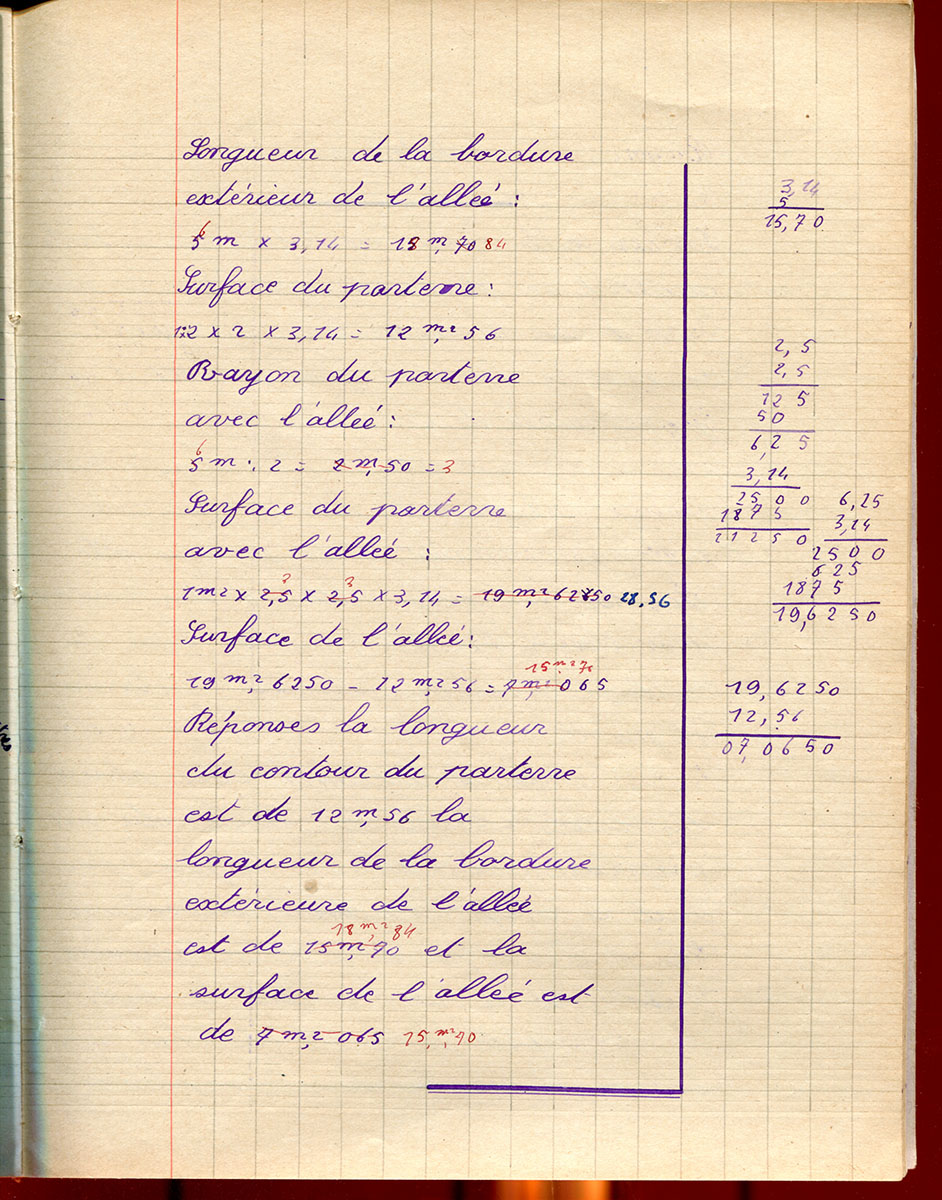 Longueur de la bordure
extérieur de l'alleé :
5 6 m × 3,14 = 15 m, 70 18 84
Surface du parterre :
1×2 × 2 × 3,14 = 12 m2, 56
Rayon du parterre
avec l'alleé :
5 6 m : 2 = 2 m, 50 = 3
Surface du parterre
avec l'alleé :
1m2 × 2,5 3 × 2,5 3 × 3,14 = 19 m2, 6250 28,56
Surface de l'alleé :
15 m2 70
19 m2, 6250 - 12 m2, 56 = 7 m2 065
Réponses la longueur
du contour du parterre
est de 12 m, 56 la
longueur de la bordure
extérieure de l'alleé
18 m2 84
est de 15 m, 70 et la
surface de l'alleé est
de 7 m2, 065 15, m2 70
3,14
5
15,70
2,5
2,5
12 5
50
6,25
3,14
25 0 0
1875
21250
6,25
3,14
2500
625
1875
19,6250
19,6250
12,56
07,0650